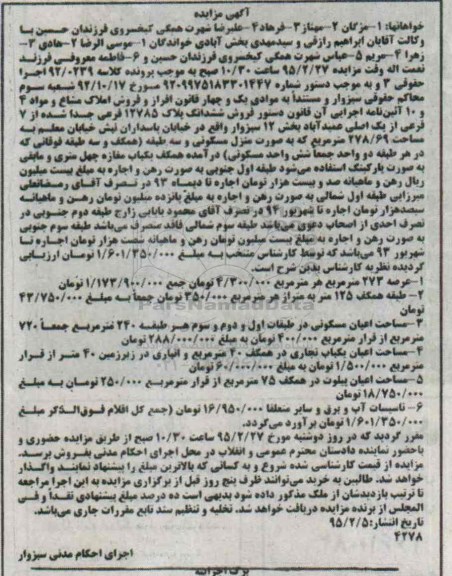 آگهی مزایده
خواهانها: ۱-مژگان ۲-مهناز ۳-فرهاد ۴-علیرضا شهرت همگی کیخسروی فرزندان حسین با
وکالت آقایان ابراهیم رازقی و سیدمهدی بخش آبادی خواندگان ۱-موسی الرضا ۲-هادی ۳-
زهرا ۴-مریم ۵-عباس شهرت همگی کیخسروی فرزندان حسین و ۶-فاطمه معروفی فرزند
نعمت اله وقت مزایده ۹۵/۲/۲۷ ساعت ۱۰/۳۰ صبح به موجب پرونده کلاسه ۹۲/۰۲۳۹ اجرا
حقوقی ۳ و به موجب دستور شماره ۹۲۰۹۹۷۵۱۸۳۳۰۱۴۴۷ مورخ ۹۲/۱۰/۱۷ شعبه سوم
محاکم حقوقی سبزوار و مستنداً به موادی یک و چهار قانون افراز و فروش املاک مشاع و مواد ۴
و ۱۰ آئین‌نامه اجرایی آن قانون دستور فروش ششدانگ پلاک ۱۲۷۸۵ فرعی جدا شده از ۷
فرعی از یک اصلی عمیدآباد بخش ۱۲ سبزوار واقع در خیابان پاسداران نبش خیابان معلم به
مساحت ۲۷۸/۶۹ مترمربع که به صورت منزل مسکونی و سه طبقه (همکف و سه طبقه فوقانی که
در هر طبقه دو واحد جمعاً شش واحد مسکونی) درآمده همکف یکباب مغازه چهل متری و مابقی
به صورت پارکینگ استفاده می‌شود طبقه اول جنوبی به صورت رهن و اجاره به مبلغ بیست میلیون
ریال رهن و ماهیانه صد و بیست هزار تومان اجاره تا دیماه ۹۳ در تصرف آقای رمضانعلی
میرزایی طبقه اول شمالی به صورت رهن و اجاره به مبلغ پانزده میلیون تومان رهن و ماهیانه
سیصدهزار تومان اجاره تا شهریور ۹۴ در تصرف آقای محمود بابایی زارج طبقه دوم جنوبی در
تصرف احدی از اصحاب دعوی می‌باشد طبقه سوم شمالی فاقد متصرف می‌باشد طبقه سوم جنوبی
به صورت رهن و اجاره به مبلغ بیست میلیون تومان رهن و ماهیانه شصت هزار تومان اجاره تا
شهریور ۹۳ می‌باشد که توسط کارشناس منتخب به مبلغ ۱/۶۰۱/۳۵۰/۰۰۰ تومان ارزیابی
گردیده نظریه کارشناس بدین شرح است.
۱-عرصه ۲۷۳ مترمربع هر مترمربع ۴/۳۰۰/۰۰۰ تومان جمع ۱/۱۷۳/۹۰۰/۰۰۰ تومان
۲-طبقه همکف ۱۲۵ متر به متراژ هر مترمربع ۳۵۰/۰۰۰ تومان جمعاً به مبلغ ۴۳/۷۵۰/۰۰۰
تومان
۳-مساحت اعیان مسکونی در طبقات اول و دوم و سوم هر طبقه ۲۴۰ مترمربع جمعاً ۷۲۰
مترمربع از قرار مترمربع ۴۰۰/۰۰۰ تومان به مبلغ ۲۸۸/۰۰۰/۰۰۰ تومان
۴-مساحت اعیان یکباب تجاری در همکف ۴۰ مترمربع و انباری در زیرزمین ۴۰ متر از قرار
مترمربع ۱/۵۰۰/۰۰۰ تومان به مبلغ ۶۰/۰۰۰/۰۰۰ تومان
۵-مساحت اعیان پیلوت در همکف ۷۵ مترمربع از قرار مترمربع ۲۵۰/۰۰۰ تومان به مبلغ
۱۸/۷۵۰/۰۰۰ تومان
۶-تاسیسات آب و برق و سایر متعلقا ۱۶/۹۵۰/۰۰۰ تومان (جمع کل اقلام فوق‌الذکر مبلغ
۱/۶۰۱/۳۵۰/۰۰۰ تومان برآورد می‌گردد.
مقرر گردید که در روز دوشنبه مورخ ۹۵/۲/۲۷ ساعت ۱۰/۳۰ صبح از طریق مزایده حضوری و
باحضور نماینده دادستان محترم عمومی و انقلاب در محل اجرای احکام مدنی بفروش برسد.
مزایده از قیمت کارشناسی شده شروع و به کسانی که بالاترین مبلغ را پیشنهاد نمایند واگذار
خواهد شد. طالبین به خرید می‌توانند ظرف پنج روز قبل از برگزاری مزایده به این اجرا مراجعه
تا ترتیب بازدیدشان از ملک مذکور داده شود بدیهی است ده درصد مبلغ پیشنهادی نقداً و فی
المجلس از برنده مزایده دریافت خواهد شد. تخلیه و تنظیم سند تابع مقررات جاری می‌باشد.
تاریخ انتشار: ۹۵/۲/۵
۴۲۷۸
اجرای احکام مدنی سبزوار
ParsNamadData